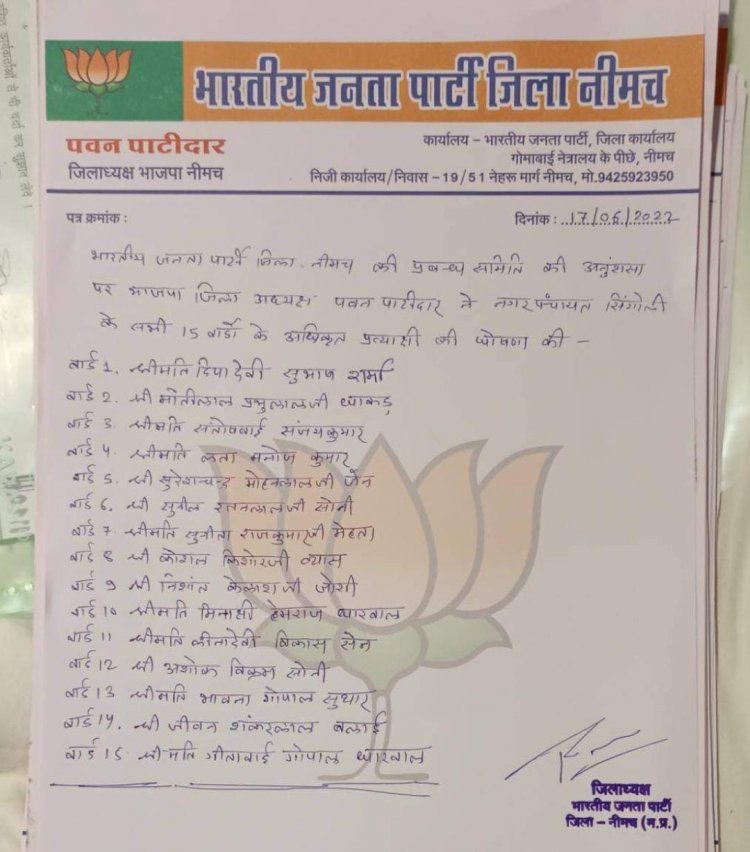 भारतीय जनता पार्टी जिला नीमच
पवन पाटीदार
जिलाध्यक्ष भाजपा नीमच
कार्यालय – भारतीय जनता पार्टी, जिला कार्यालय
गोमाबाई नेत्रालय के पीछे, नीमच
निजी कार्यालय/निवास – 19/51 नेहरू मार्ग नीमच, मो.9425923950
पत्र क्रमांक :
दिनांक : 17/06/2022
भारतीय जनता पार्टी जिला. नीमच की प्रबन्ध समिति की अनुंशसा
पर भाजपा जिला अध्यक्ष पवन पाटीदार ने नगर पंचायत सिंगोली
के सभी 15 वार्डो के अधिकृत प्रत्याशी की घोषणा की –
वार्ड 1. श्रीमति दिपा देवी सुभाष शर्मा
वार्ड 2. श्री मोतीलाल प्रभुलालजी धाकड़
वार्ड 3. श्रीमति संतोषबाई संजयकुमार
वार्ड 4. श्रीमति लता मनोज कुमार
वार्ड 5. श्री सुरेशचन्द्र मोहनलालजी जैन
वार्ड 6. श्री सुनील रतनलालजी सोनी
वार्ड 7. श्रीमति सुनीता राजकुमारजी मेहता
वार्ड 8 श्री कोशल किशोरजी व्यास
वार्ड 9 श्री निशांत केलाश जी जोशी
वार्ड 10 श्रीमति मिनाक्षी हेमराज धारवाल
वार्ड 11 श्रीमति लीलादेवी विकास सेन
वार्ड 12 श्री अशोक विक्रम सोनी
वार्ड 13 श्रीमति भावना गोपाल सुथार
वार्ड 14. श्री जीवन शंकरलाल बलाई
वार्ड 15 श्रीमति गीताबाई गोपाल धारवाल
जिलाध्यक्ष
भारतीय जनता पार्टी
जिला – नीमच (म.प्र.)